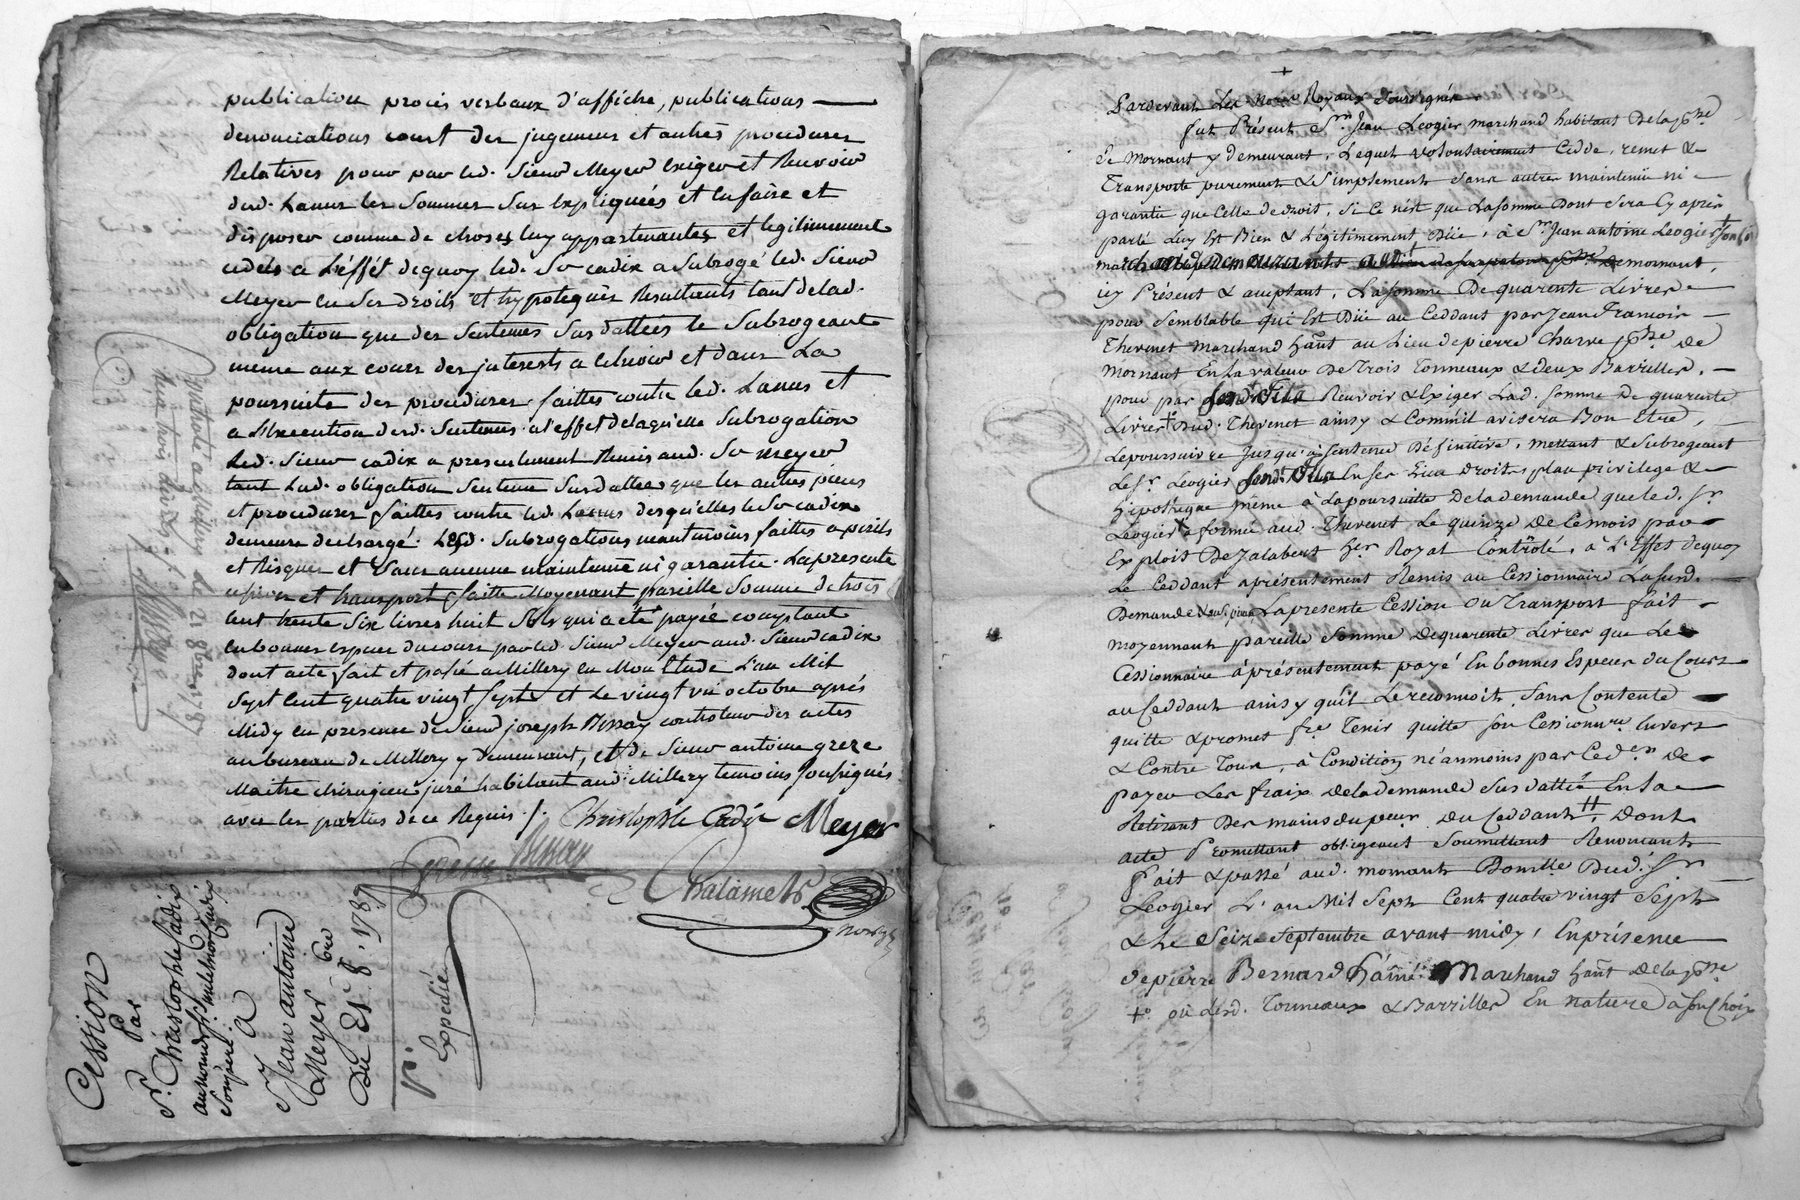 publication procès verbaux d'affiche, publications
denonciations court des jugemens et autres procedures
Relatives pour par led. Sieur Meyer exiger et Recevoir
dud. Lanus les Sommes Sus Expliquées et en faire et
disposer comme de choses luy appartenantes et legitimement
cedées a L'éffét dequoy led. Sr cadix a Subrogé led. Sieur
Meyer en Ses Droits et hypoteques Resultants tant delad.
obligation que des Sentences Sus dattées le Subrogeant
même aux cours des jnterests a echeoir et dans La
poursuite des procedures faittes contre led. Lanus et
a L'Execution desd. Sentences. a l'effet delaquelle Subrogation
Led. Sieur cadix a presentement Remis aud. Sr Meyer
tant Lad. obligation Sentences Sus dattées que les autres pieces
et procedures faittes contre led. Lanus desquelles le Sr cadix
demeure dechargé. Lesd. Subrogations neantmoins faittes a perils
et Risques et Sans aucune maintenue ni garantie. La presente
cession et transport faitte Moyenant pareille Somme de trois
Cent trente Six livres huit Sols qui a été payée comptant
en bonnes especes du cours par led. Sieur Meyer aud. Sieur cadix
dont acte fait et passé a Millery en Mon Etude L'an Mil
Sept Cent quatre vingt Sept et Le vingt un octobre après
Midy en presence de Sieur joseph Bissay controleur des actes
au bureau de Millery y demeurant, et de Sieur antoine greze
Maitre chirurgien juré habitant aud. Millery temoins soussignés
avec les parties de ce Requis ./. Christophle Cadix Meyer
Greze Bissay
Chalamel
Contrôlé a
le 21 8bre 1787
Cession
Par
Sr. Christophle Cadix
A
Sr Jean antoine
Meyer
Du 21e 8bre 1787
Expedié
Pardevant Les Nores Royaux Soussignés
fut Présent Sr. Jean Leogier marchand habitant Dela psse
De Mornant y demeurant, Lequel volontairement Cedde, remet &
Transporte purement & Simplement Sans autre maintenüe ni
garantie que Celle de droit, Si Ce n'est que La Somme Dont Sera Cy après
parlé Luy Est Bien & Légitimement Düe, à Sr. Jean antoine Leogier † son
Mornant,
icy Présent & acceptant, La Somme De quarente Livres
pour Semblable qui Est Düe au Ceddant par Jean François
Thevenet Marchand hant au Lieu de pierre Charve psse de
Mornant En La valeur De Trois Tonneaux & deux Barrilles,
pour par Recevoir & Exiger Lad. Somme De quarente
Livres †° Dud. Thevenet ainsy & Comm'il avisera Bon Etre,
Le poursuivre Jusqu'à Sentence Définitive, mettant & Subrogeant
Le Sr. Leogier En Ses Lieu droits, plan privilege &
Hipothèque même à La poursuitte De la demande que led. Sr
Leogier a formée aud. Thevenet Le quinze De Ce mois par
Exploit De Zalabert her. Royal Contrôlé, à L'Effet dequoy
Le Ceddant a présentement Remis au Cessionnaire La susd.
Demande La presente Cession ou Transport fait
moyennant pareille Somme De quarente Livres que Le
Cessionnaire à présentement payé En bonnes Especes du Cours
au Ceddant ainsy qu'il Le reconnoit, Sans Contente
quitte & promet fre Tenir quitte Son Cessionnre. Envers
& Contre Tous, à Condition néanmoins par Led. De
payer Les fraix de la demande Sus dattée En La
Retirant Des mains du peur. Du Ceddant ††, Dont
acte Promettant obligeant Soumettant Renonçant
fait & passé aud. Mornant Domlle Dud. Sr
Leogier L'an Mil Sept Cent quatre vingt Sept
& Le Seize Septembre avant midy, En présence
de pierre Bernard L'aîné Marchand hant Dela psse
†° ou Lesd. Tonneaux & Barrilles En nature a Son Choix